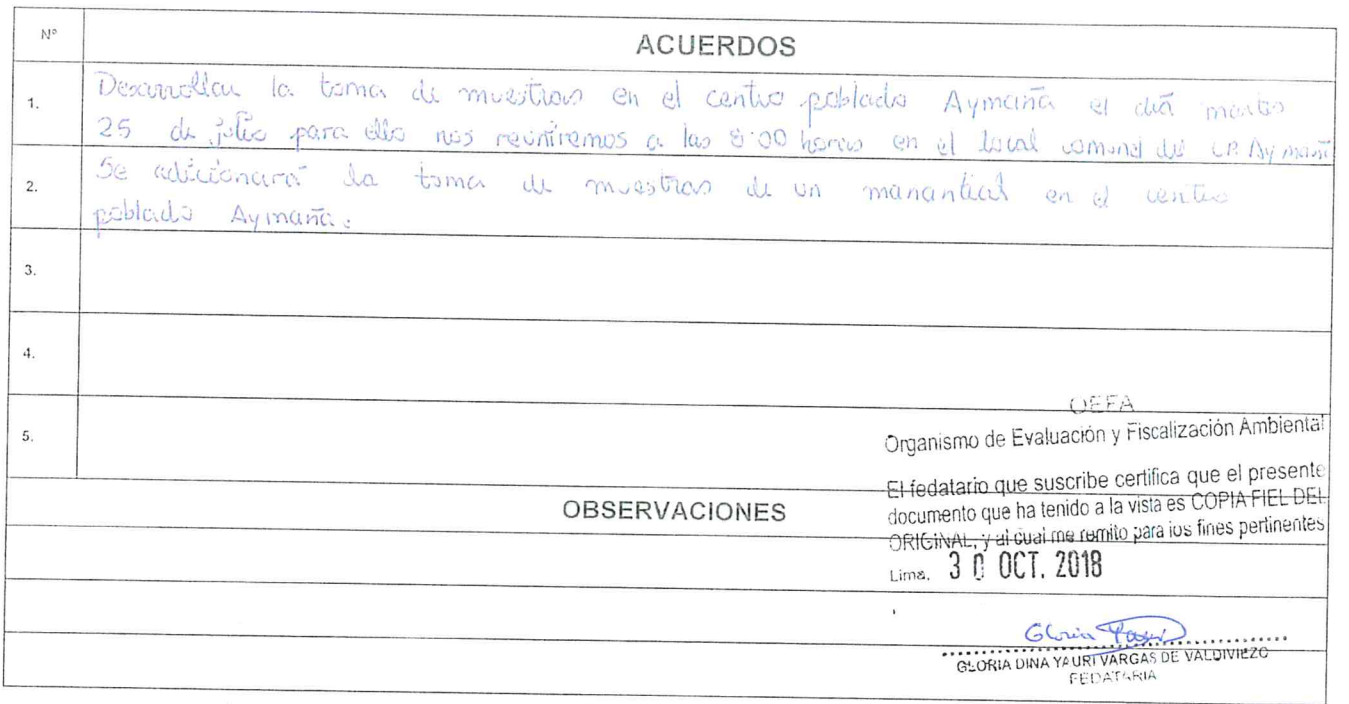 N° ACUERDOS
1. Desarrollar la toma de muestras en el centro poblado Aymaña el día martes
25 de julio para ello nos reuniremos a las 8:00 horas en el local comunal del C.P. Aymaña
2. Se adicionará la toma de muestras de un manantial en el centro
poblado Aymaña.
3.
4.
5.
OBSERVACIONES
OEFA
Organismo de Evaluación y Fiscalización Ambiental
El fedatario que suscribe certifica que el presente
documento que ha tenido a la vista es COPIA FIEL DEL
ORIGINAL, y al cual me remito para los fines pertinentes
Lima, 30 OCT. 2018
Gloria Yauri
GLORIA DINA YAURI VARGAS DE VALDIVIEZO
FEDATARIA